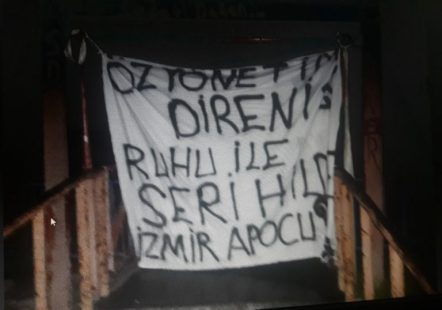 ÖZYÖNETİM
DİRENİŞ
RUHU İLE
SERİ HILD
İZMİR APOCU